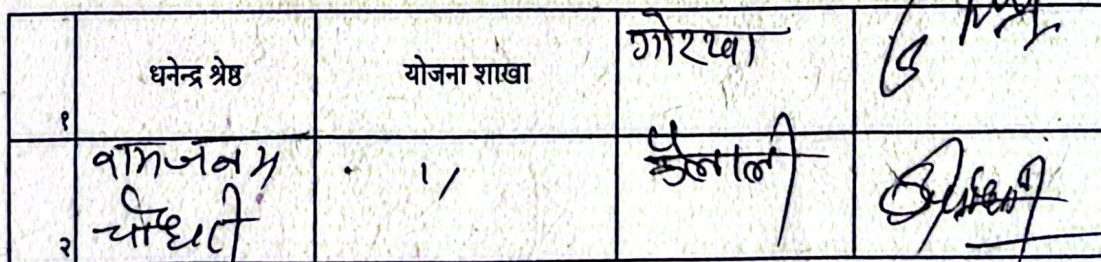 १ धनेन्द्र श्रेष्ठ योजना शाखा गोरखा
रामजनम
२ चौधरी 〃 कैलाली